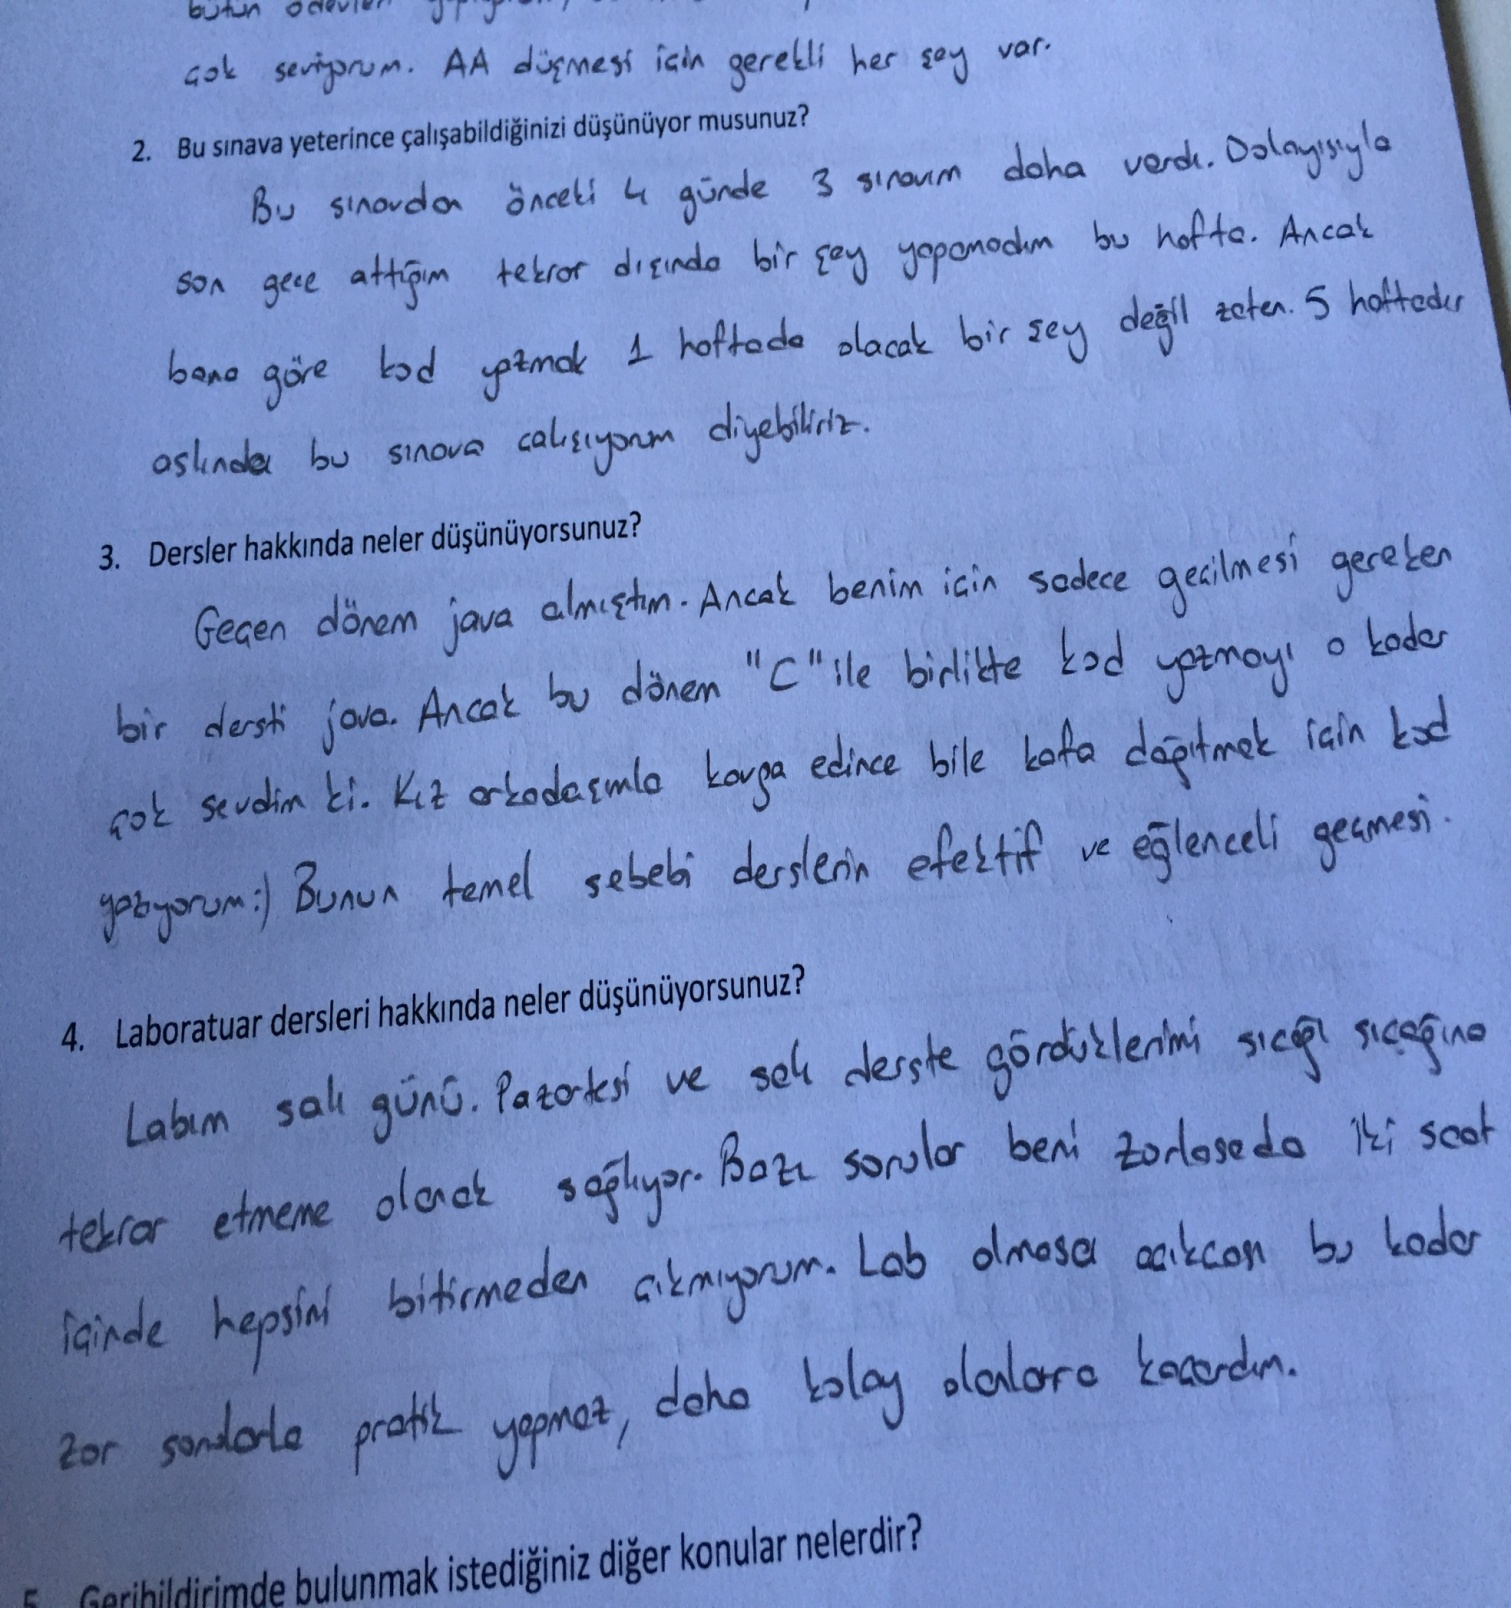 bütün
çok seviyorum. AA düşmesi için gerekli her şey var.
2. Bu sınava yeterince çalışabildiğinizi düşünüyor musunuz?
Bu sınavdan önceki 4 günde 3 sınavım daha vardı. Dolayısıyla
son gece attığım tekrar dışında bir şey yapamadım bu hafta. Ancak
bana göre kod yazmak 1 haftada olacak bir şey değil zaten. 5 haftadır
aslında bu sınava çalışıyorum diyebiliriz.
3. Dersler hakkında neler düşünüyorsunuz?
Geçen dönem java almıştım. Ancak benim için sadece geçilmesi gereken
bir dersti java. Ancak bu dönem "C" ile birlikte kod yazmayı o kadar
çok sevdim ki. Kız arkadaşımla kavga edince bile kafa dağıtmak için kod
yazıyorum:) Bunun temel sebebi derslerin efektif ve eğlenceli geçmesi.
4. Laboratuar dersleri hakkında neler düşünüyorsunuz?
Labım salı günü. Pazartesi ve salı derste gördüklerimi sıcağı sıcağına
tekrar etmeme olanak sağlıyor. Bazı sorular beni zorlasada iki saat
içinde hepsini bitirmeden çıkmıyorum. Lab olmasa açıkcası bu kadar
zor sorularla pratik yapmaz, daha kolay olanlara kaçardım.
5. Geribildirimde bulunmak istediğiniz diğer konular nelerdir?